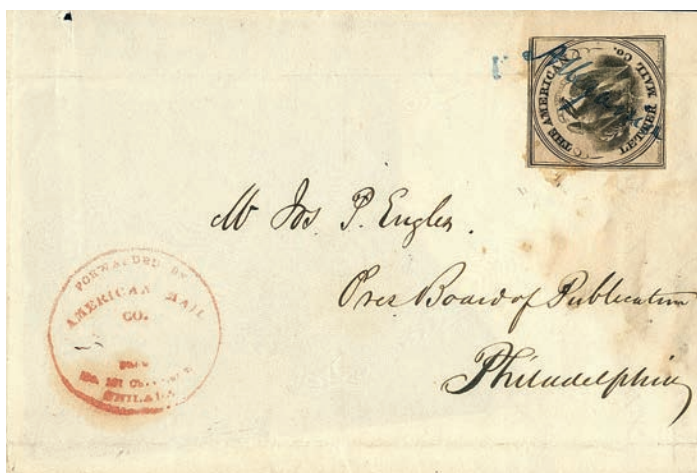 THE AMERICAN LETTER MAIL CO.
Mr Jos. P. Engles.
Pres Board of Publication
Philadelphia
FORWARDED BY
AMERICAN MAIL
CO.
PHILADA